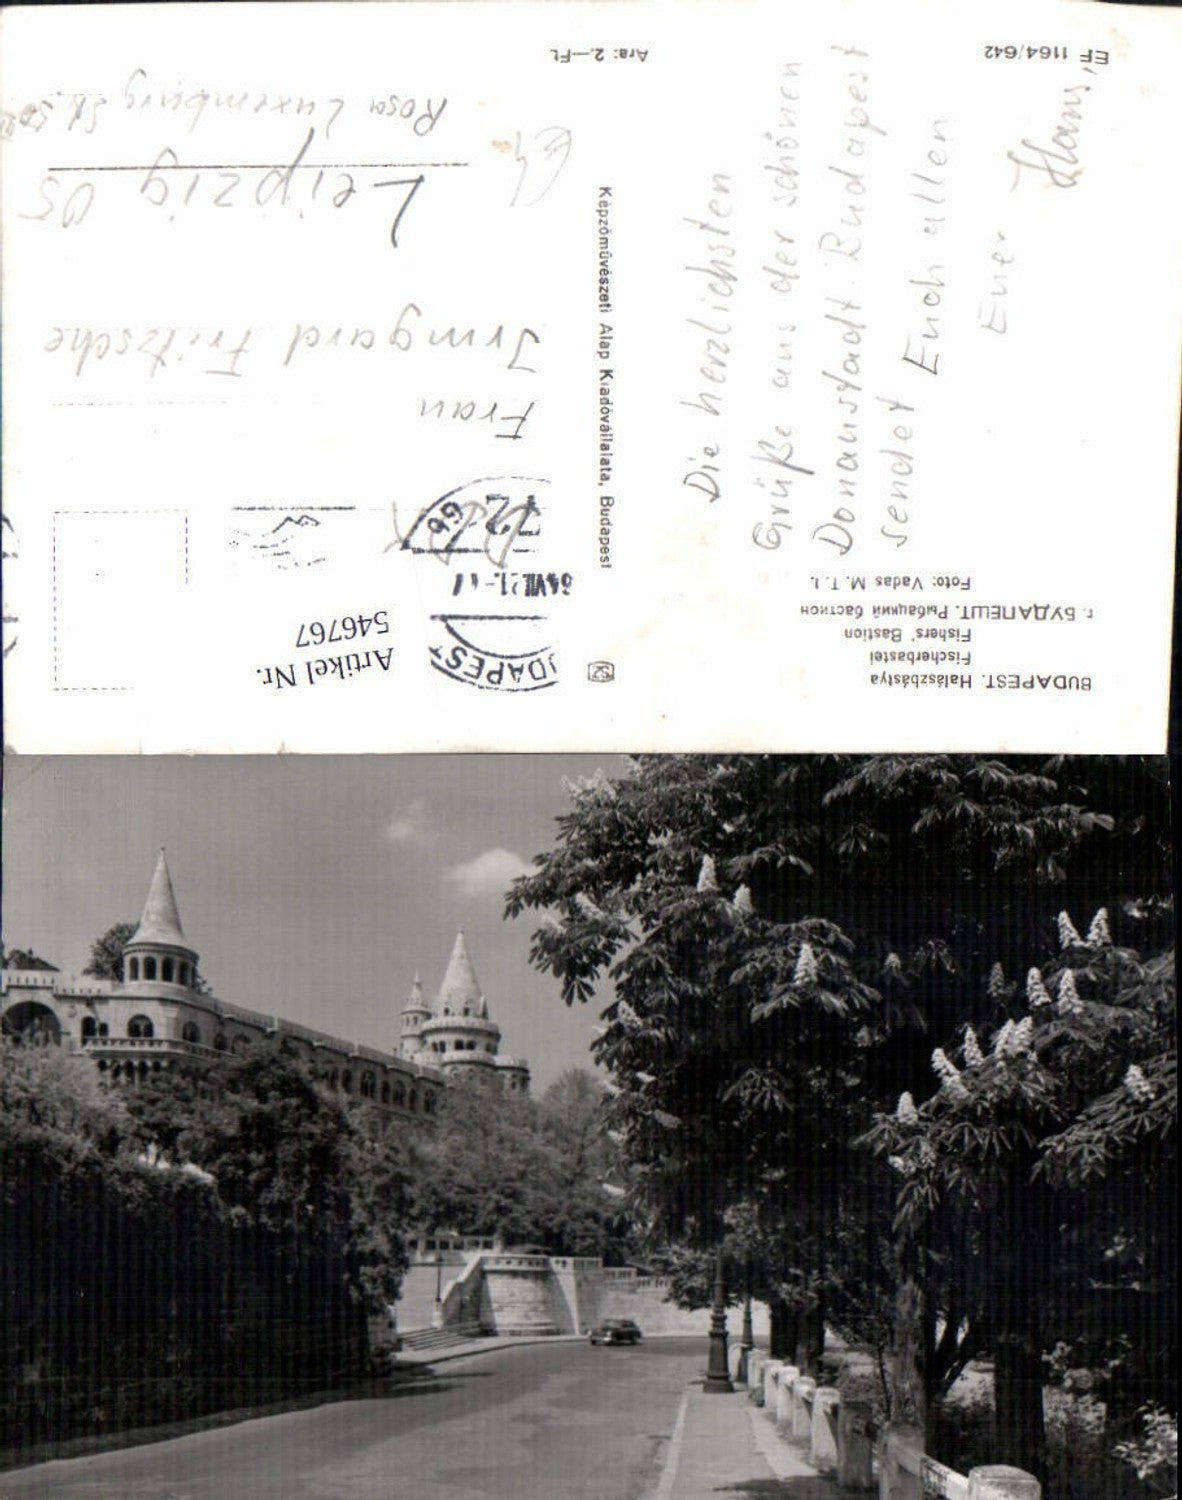 BUDAPEST. Halászbástya
Fischerbastei
Fishers' Bastion
г. БУДАПЕШТ. Рыбацкий бастион
Foto: Vadas M. T. I.
Die herzlichsten
Grüße aus der schönen
Donaustadt Budapest
sendet Euch allen
Euer Hans,
EF 1164/642
Képzőművészeti Alap Kiadóvállalata, Budapest
Artikel Nr.
546767
72
66
Frau
Irmgard Fritzsche
Leipzig 05
Rosa Luxemburg Str.
Ára: 2.—Ft.